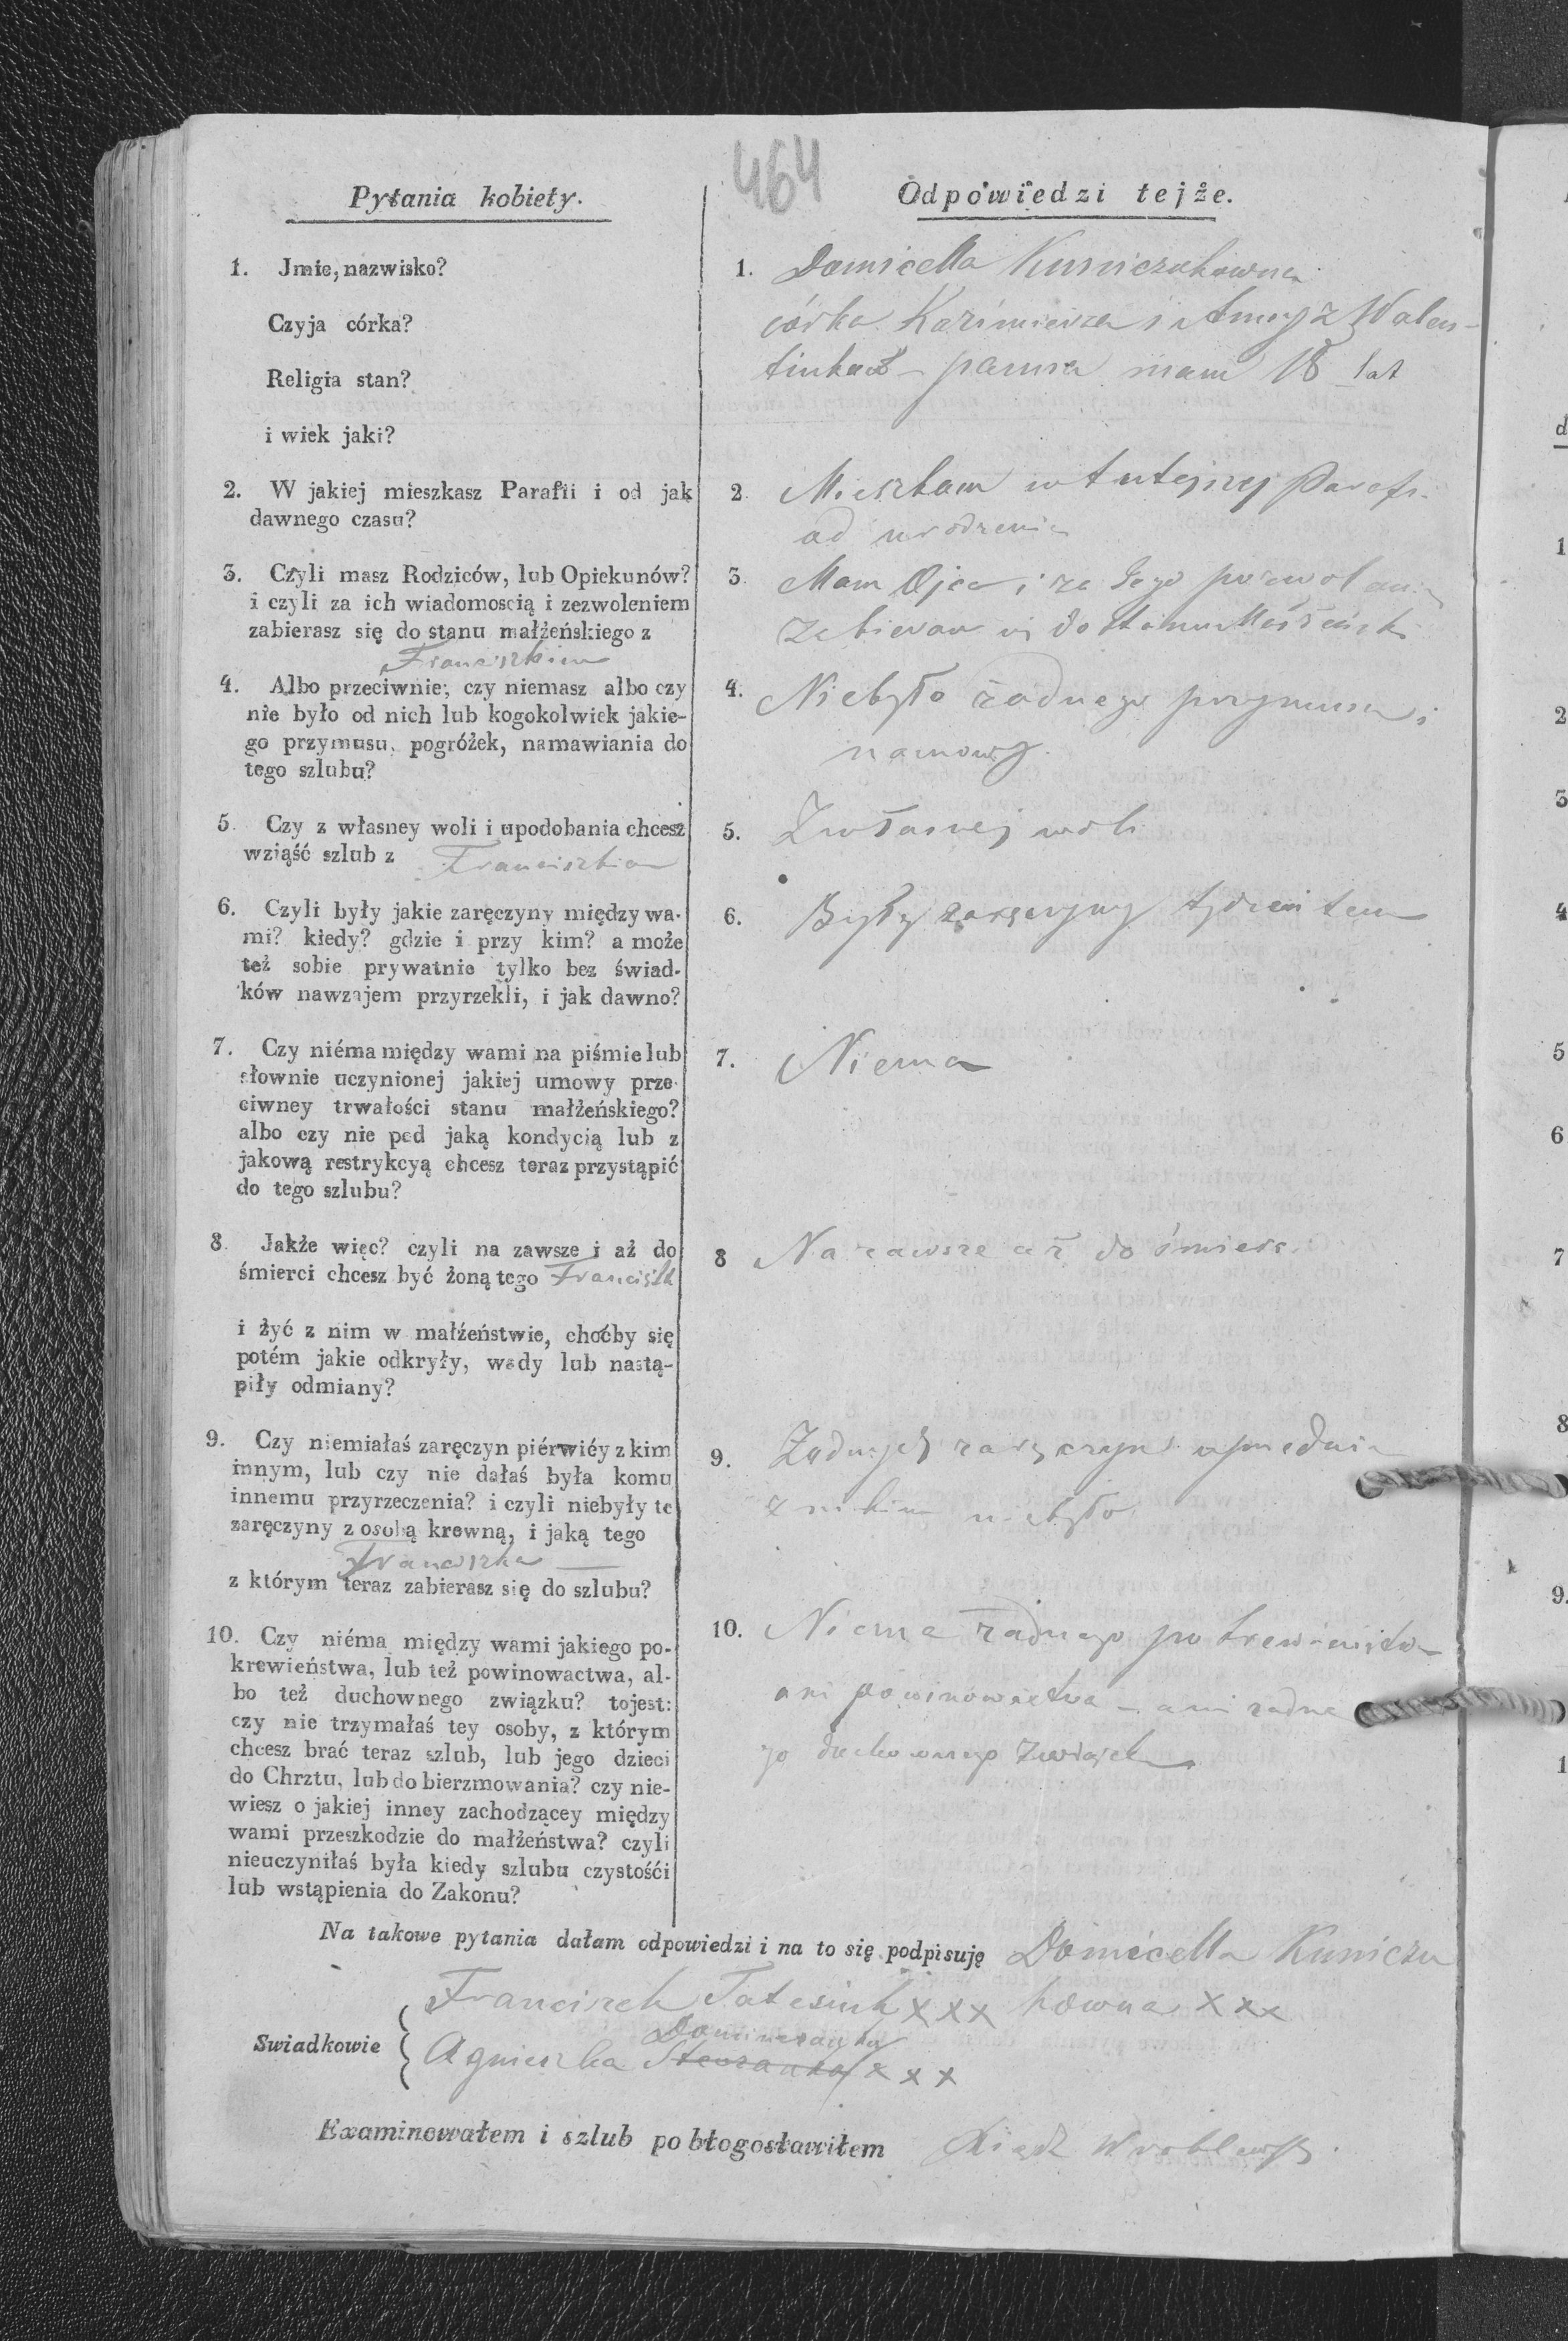 464
Pytania kobiety.
Odpowiedzi tejże.
1. Jmie, nazwisko?
Czyja córka?
Religia stan?
i wiek jaki?
1. Domicella Kuniczukowna
córka Kazimierza i Anny z Walen-
tinkow – panna mam 18 lat
2. W jakiej mieszkasz Parafii i od jak
dawnego czasu?
2 Mieszkam w tutejszej Parafi
od urodzenia
3. Czyli masz Rodziców, lub Opiekunów?
i czyli za ich wiadomoscią i zezwoleniem
zabierasz się do stanu małżeńskiego z
Franciszkiem
3. Mam Ojca i za Jego pozwolani
Zabieram się do stanu
4. Albo przeciwnie, czy niemasz albo czy
nie było od nich lub kogokolwiek jakie-
go przymusu, pogróżek, namawiania do
tego szlubu?
4. Niebyło żadnego przymusu i
namowy.
5. Czy z własney woli i upodobania chcesz
wziąść szlub z Franciszkiem
5. Z własnej woli
6. Czyli były jakie zaręczyny między wa-
mi? kiedy? gdzie i przy kim? a może
też sobie prywatnie tylko bez świad-
ków nawzajem przyrzekli, i jak dawno?
6. Były zaręczyny tydzień temu
7. Czy niéma między wami na piśmie lub
słownie uczynionej jakiej umowy prze-
ciwney trwałości stanu małżeńskiego?
albo czy nie pod jaką kondycią lub z
jakową restrykcyą chcesz teraz przystąpić
do tego szlubu?
7. Niema
8. Jakże więc? czyli na zawsze i aż do
śmierci chcesz być żoną tego Franciszk
i żyć z nim w małżeństwie, choćby się
potém jakie odkryły, wady lub nastą-
piły odmiany?
8 Na zawsze aż do śmierci
9. Czy niemiałaś zaręczyn piérwiéy z kim
innym, lub czy nie dałaś była komu
innemu przyrzeczenia? i czyli niebyły te
zaręczyny z osobą krewną, i jaką tego
Franciszka
z którym teraz zabierasz się do szlubu?
9. Żadnych zaręczyn uprzednio
z nikim niebyło
10. Czy niéma między wami jakiego po-
krewieństwa, lub też powinowactwa, al-
bo też duchownego związku? tojest:
czy nie trzymałaś tey osoby, z którym
chcesz brać teraz szlub, lub jego dzieci
do Chrztu, lub do bierzmowania? czy nie-
wiesz o jakiej inney zachodzącey między
wami przeszkodzie do małżeństwa? czyli
nieuczyniłaś była kiedy szlubu czystośći
lub wstąpienia do Zakonu?
10. Niema żadnego pokrewieństwa
ani powinowactwa – ani żadne
go duchownego związku
Na takowe pytania dałam odpowiedzi i na to się podpisuję Domicella Kuniczu
kowna xxx
Swiadkowie
Franciszek xxx
Agnieszka xxx
Examinowałem i szlub pobłogosławiłem Xiądz Wroblewski